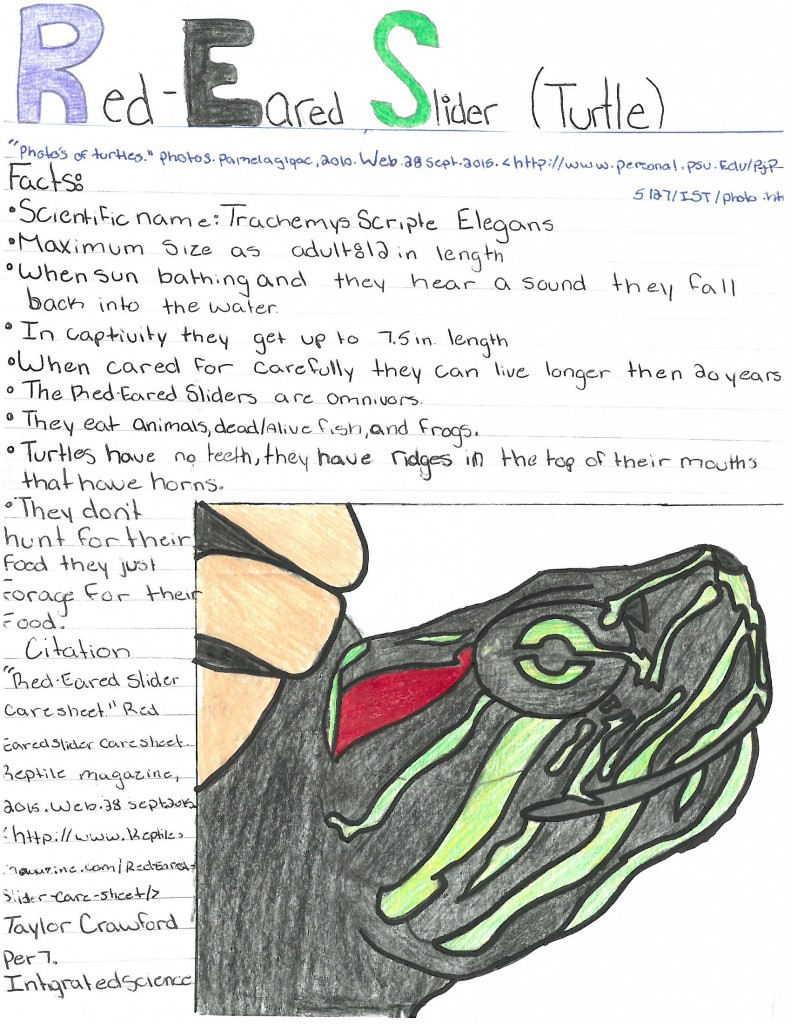 Red-Eared Slider (Turtle)
"Photo's of turtles." Photos. Pamelagigac, 2010. Web. 28 Sept. 2015. <http://www.personal.psu.Edu/PJP-
5127/IST/photo.
Facts:
•Scientific name: Trachemys Scripte Elegans
•Maximum size as adult812 in length
•When sun bathing and they hear a sound they fall
back into the water.
•In captivity they get up to 7.5 in length
•When cared for carefully they can live longer then 20 years
•The Red-Eared Sliders are omnivors.
•They eat animals, dead/Alive fish, and frogs.
•Turtles have no teeth, they have ridges in the top of their mouths
that have horns.
•They don't
hunt for their
food they just
Forage for their
Food.
Citation
"Red-Eared Slider
Caresheet." Red
Eared Slider Caresheet.
Reptile magazine,
2015. Web. 28 Sept 2015
<http://www.Reptiles
magazine.com/Red-Eared-
Slider-Care-Sheet/>
Taylor Crawford
Per 7.
Intigrated Science